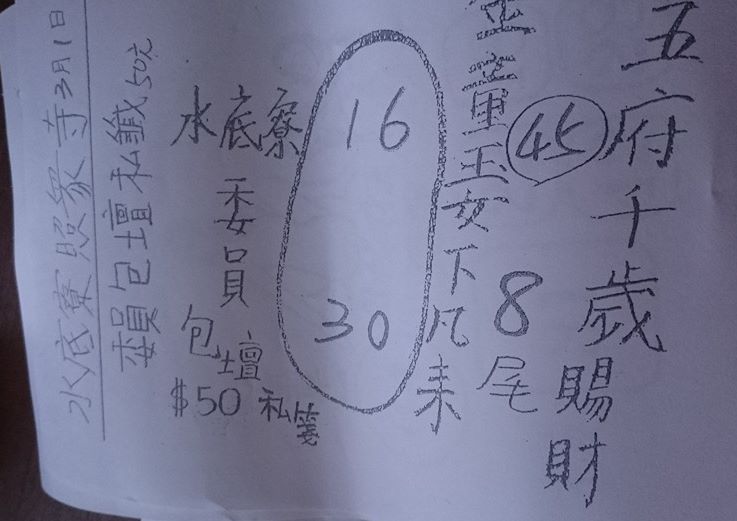 五府千歲賜財
45
8尾
金童玉女下凡来
16
30
水底寮
委員
包壇
$50 私箋
委員包壇私籤50元
水底寮照眾寺3月1日